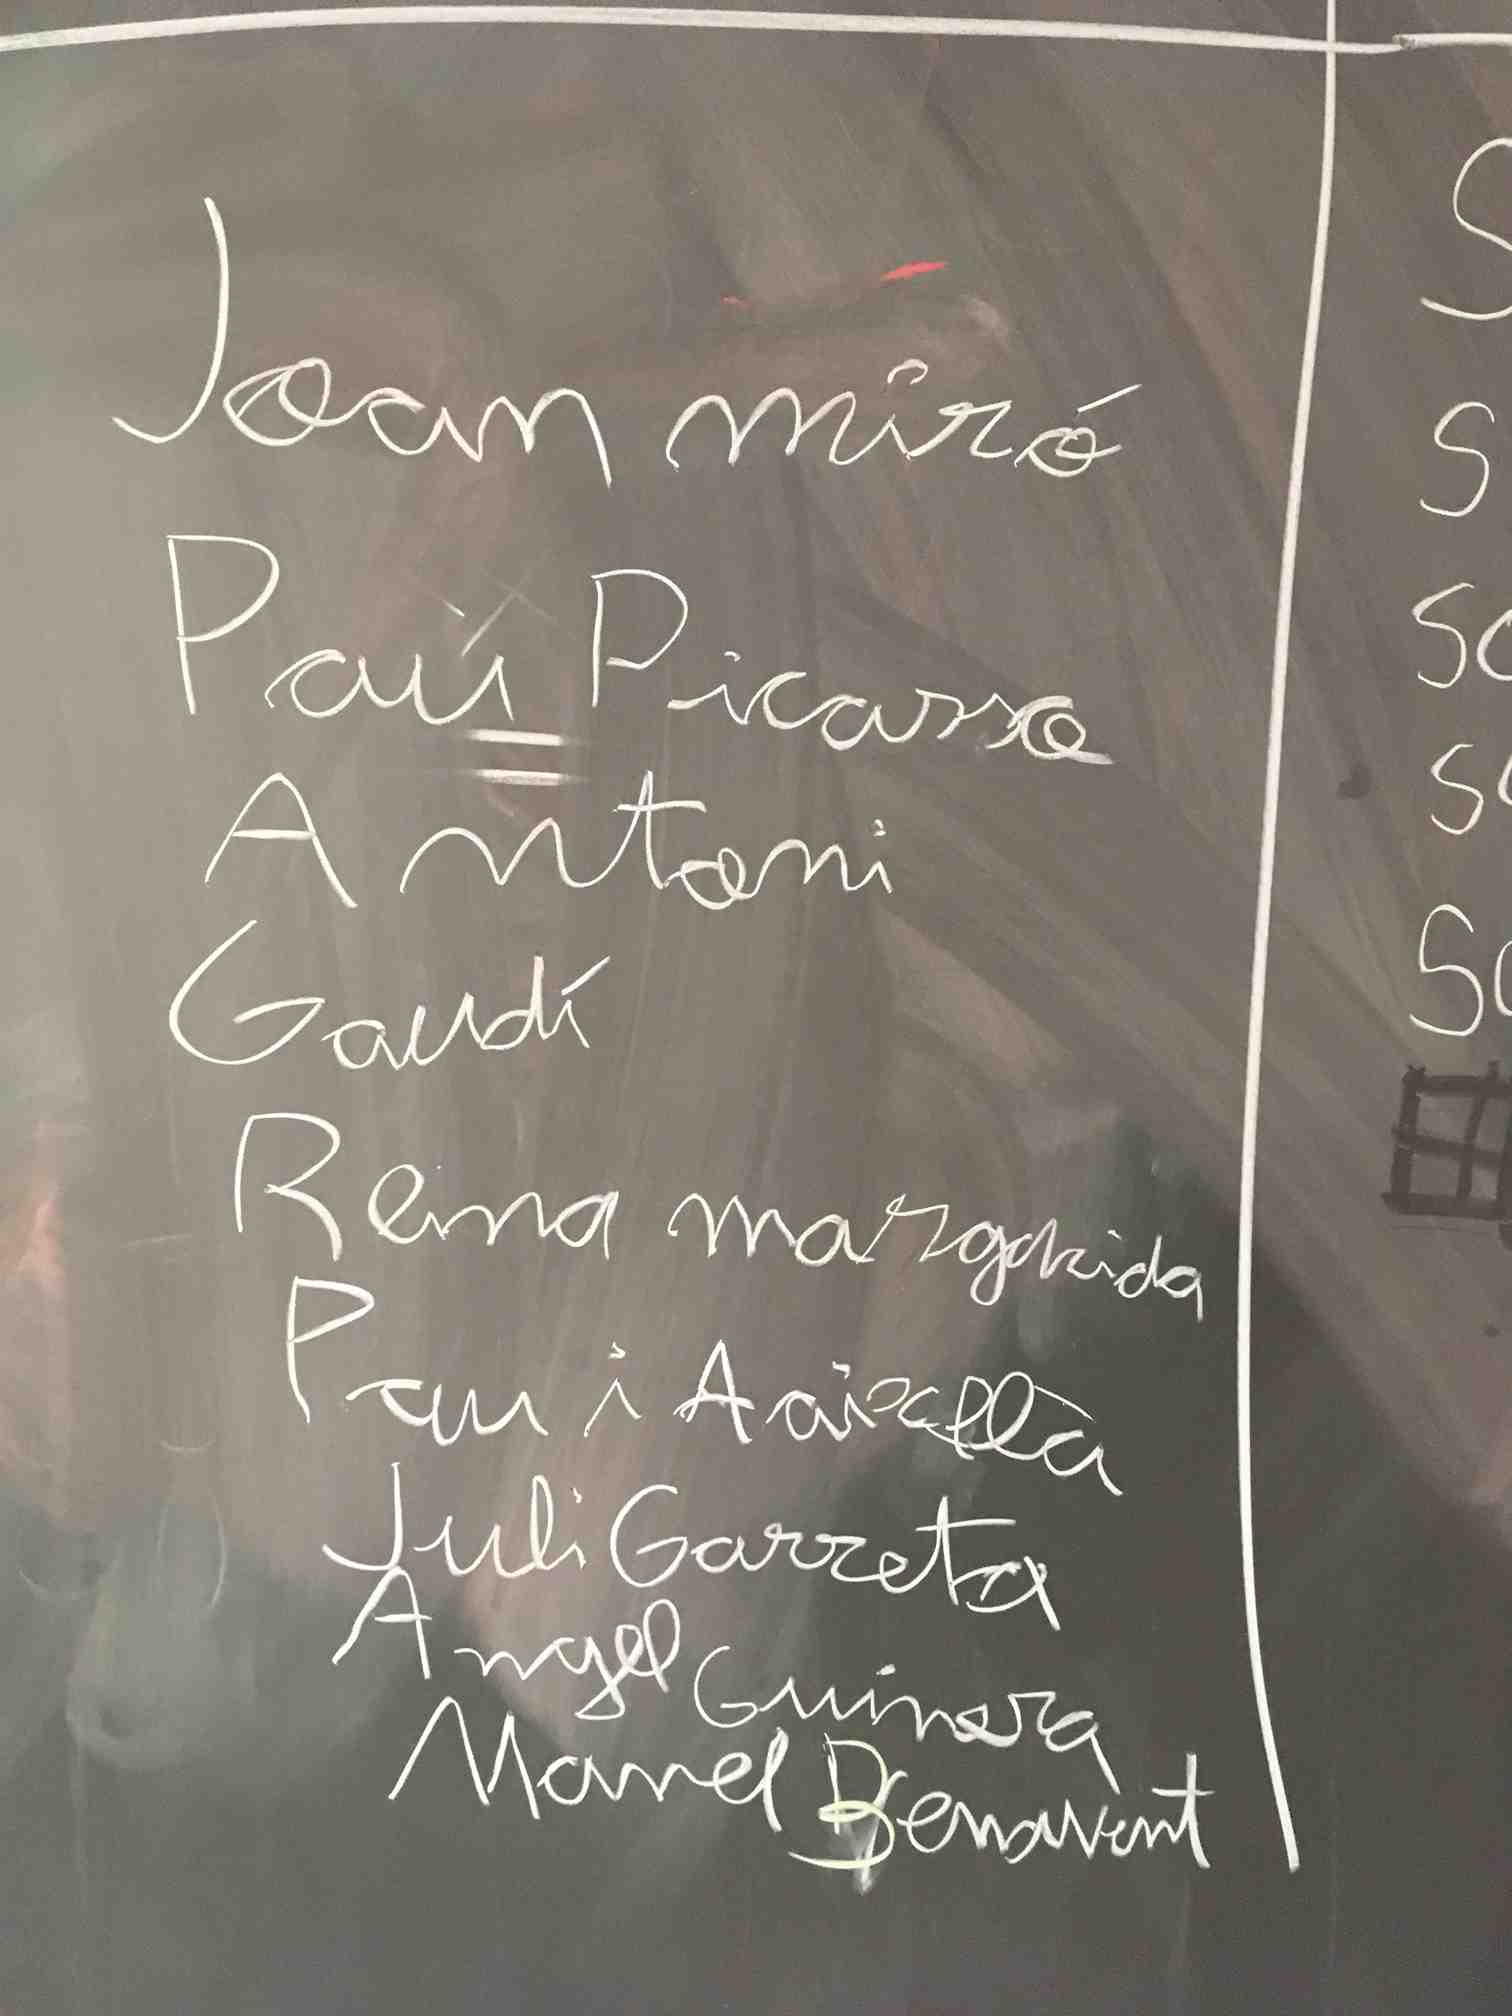 Joan miró
Paú Picasso
Antoni
Gaudí
Reina margarida
Pau i
Juli Garreta
Angel Guimera
Manel Benavent
S
S
so
so
So